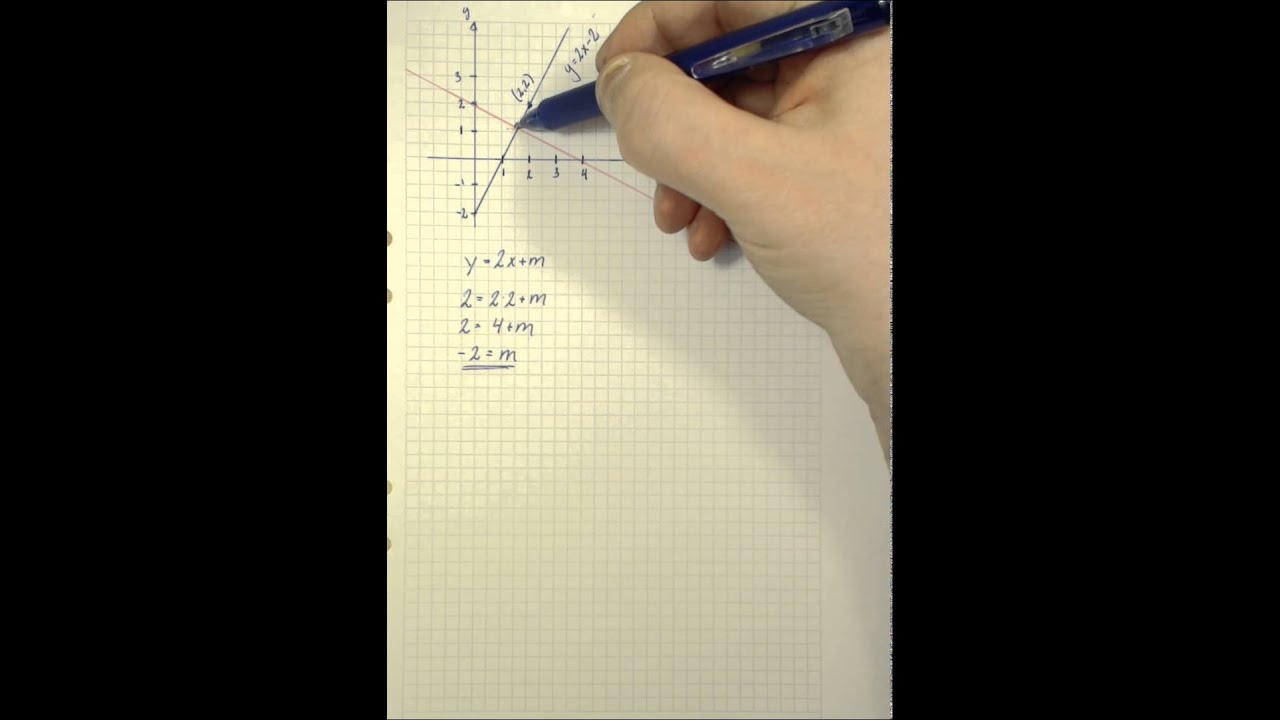 y
y=2x-2
(2,2)
3
2
1
1 2 3 4
-1
-2
y = 2x+m
2 = 2·2+m
2 = 4+m
-2 = m